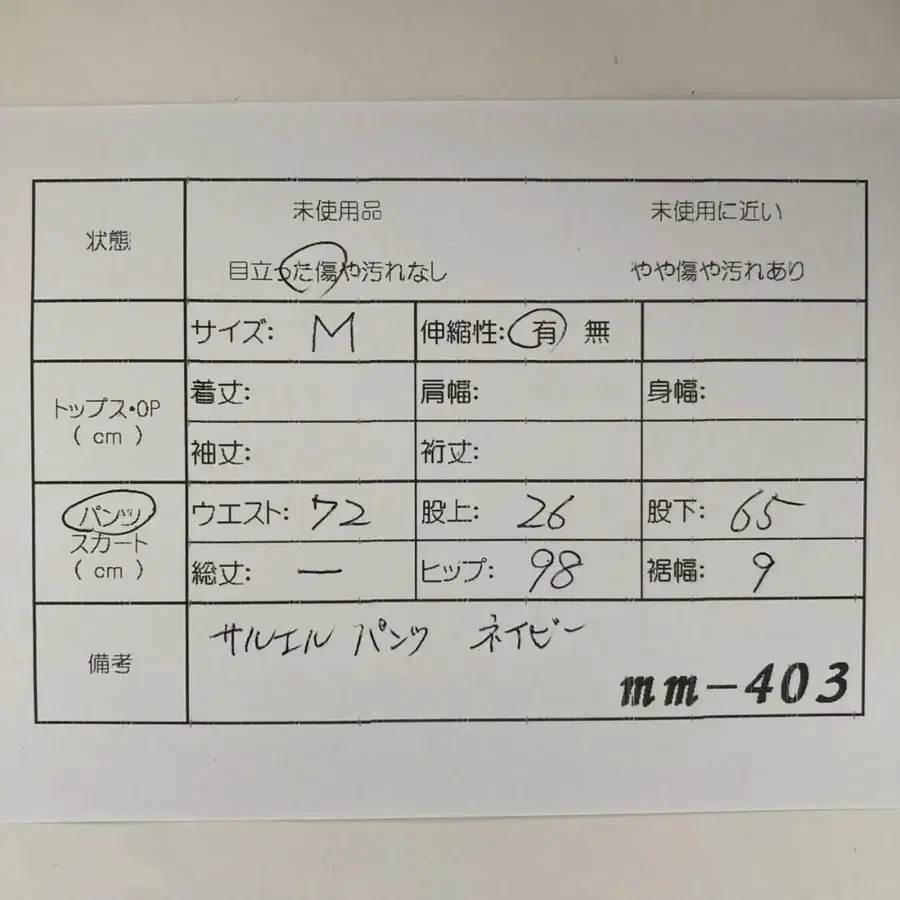 状態 未使用品 未使用に近い
目立った傷や汚れなし やや傷や汚れあり
サイズ: M 伸縮性: 有 無
トップス・OP
( cm )
着丈: 肩幅: 身幅:
袖丈: 裄丈:
パンツ
スカート
( cm )
ウエスト: 72 股上: 26 股下: 65
総丈: ー ヒップ: 98 裾幅: 9
備考
サルエル パンツ ネイビー
mm-403